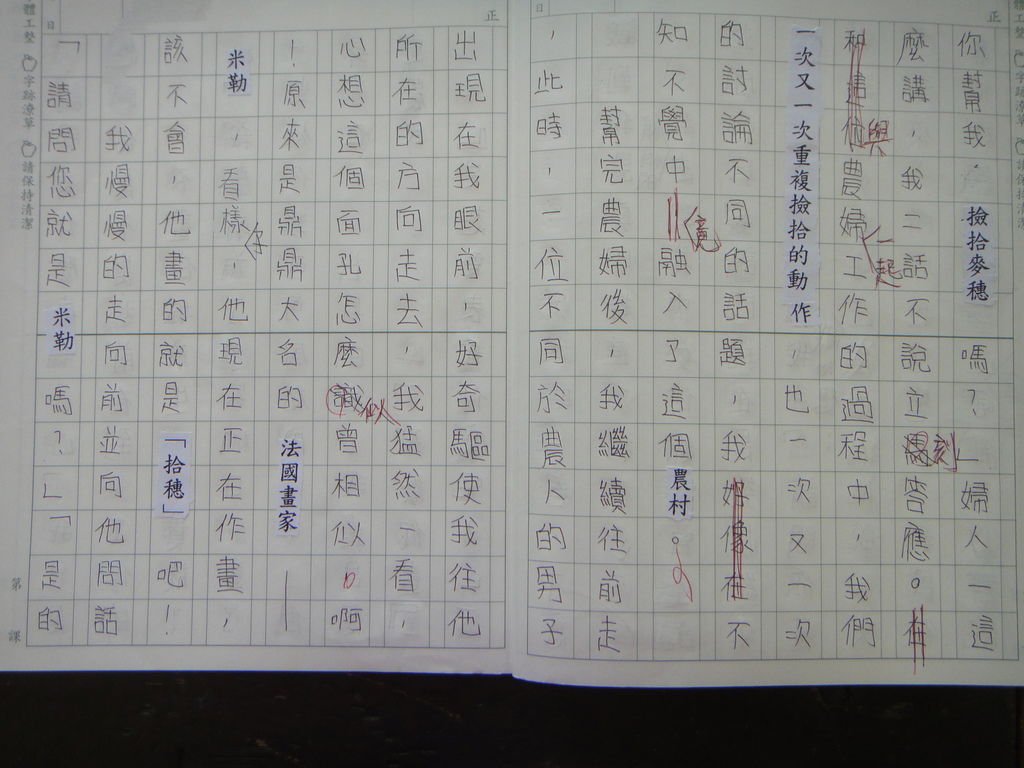 你幫我撿拾麥穗嗎?」婦人一這
麼講,我二話不說立刻答應。在
和這位與農婦一起工作的過程中,我們
一次又一次重複撿拾的動作,也一次又一次
的討論不同的話題,我好像在不
知不覺中竟融入了這個農村。
幫完農婦後,我繼續往前走
,此時,一位不同於農人的男子
出現在我眼前,好奇驅使我往他
所在的方向走去,我猛然一看,
心想這個面孔怎麼識似曾相似。啊
!原來是鼎鼎大名的法國畫家—
米勒,看樣子,他現在正在作畫,
該不會,他畫的就是「拾穗」吧!
我慢慢的走向前並向他問話
「請問您就是米勒嗎?」「是的
正
正
日
日
體工整
字跡潦草
請保持清潔
體工整
字跡潦草
請保持清潔
第 課